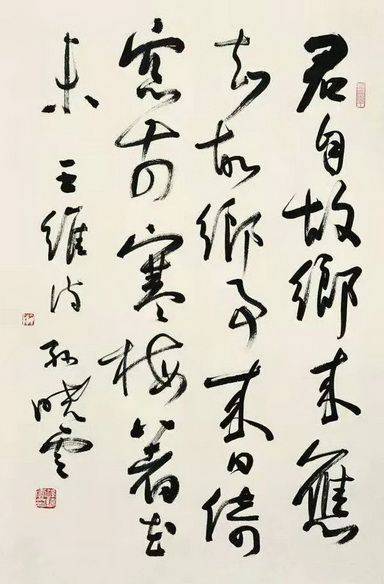 君自故鄉來應
知故鄉事來日綺
窓前寒梅著花
未 王維詩 孫曉雲